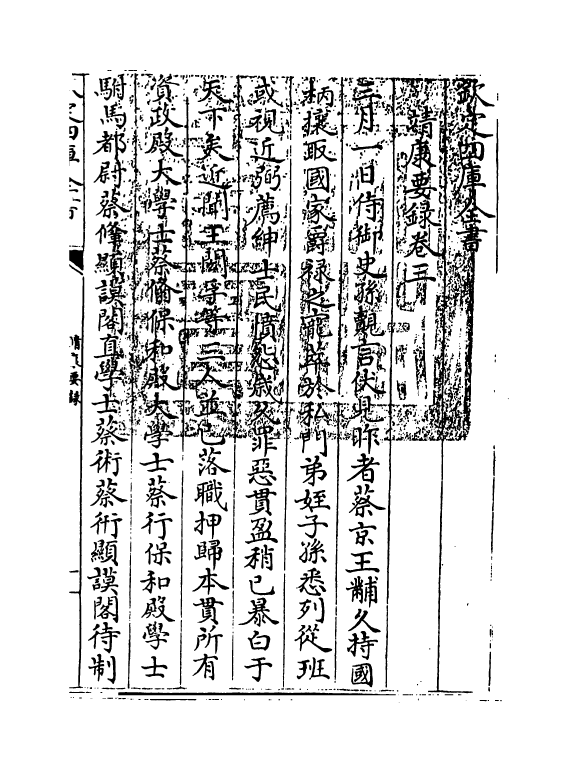 欽定四庫全書
靖康要録卷三
三月一日侍御史孫覿言伏見昨者蔡京王黼久持國
柄攘取國家爵禄之寵萃於私門弟姪子孫悉列從班
或視近弼薦紳士民憤怨歲久罪惡貫盈稍已暴白于
天下矣近聞王閎孚等三人並已落職押歸本貫所有
資政殿大學士蔡翛保和殿大學士蔡行保和殿學士
駙馬都尉蔡鞗顯謨閣直學士蔡術蔡衎顯謨閣待制
靖康要録